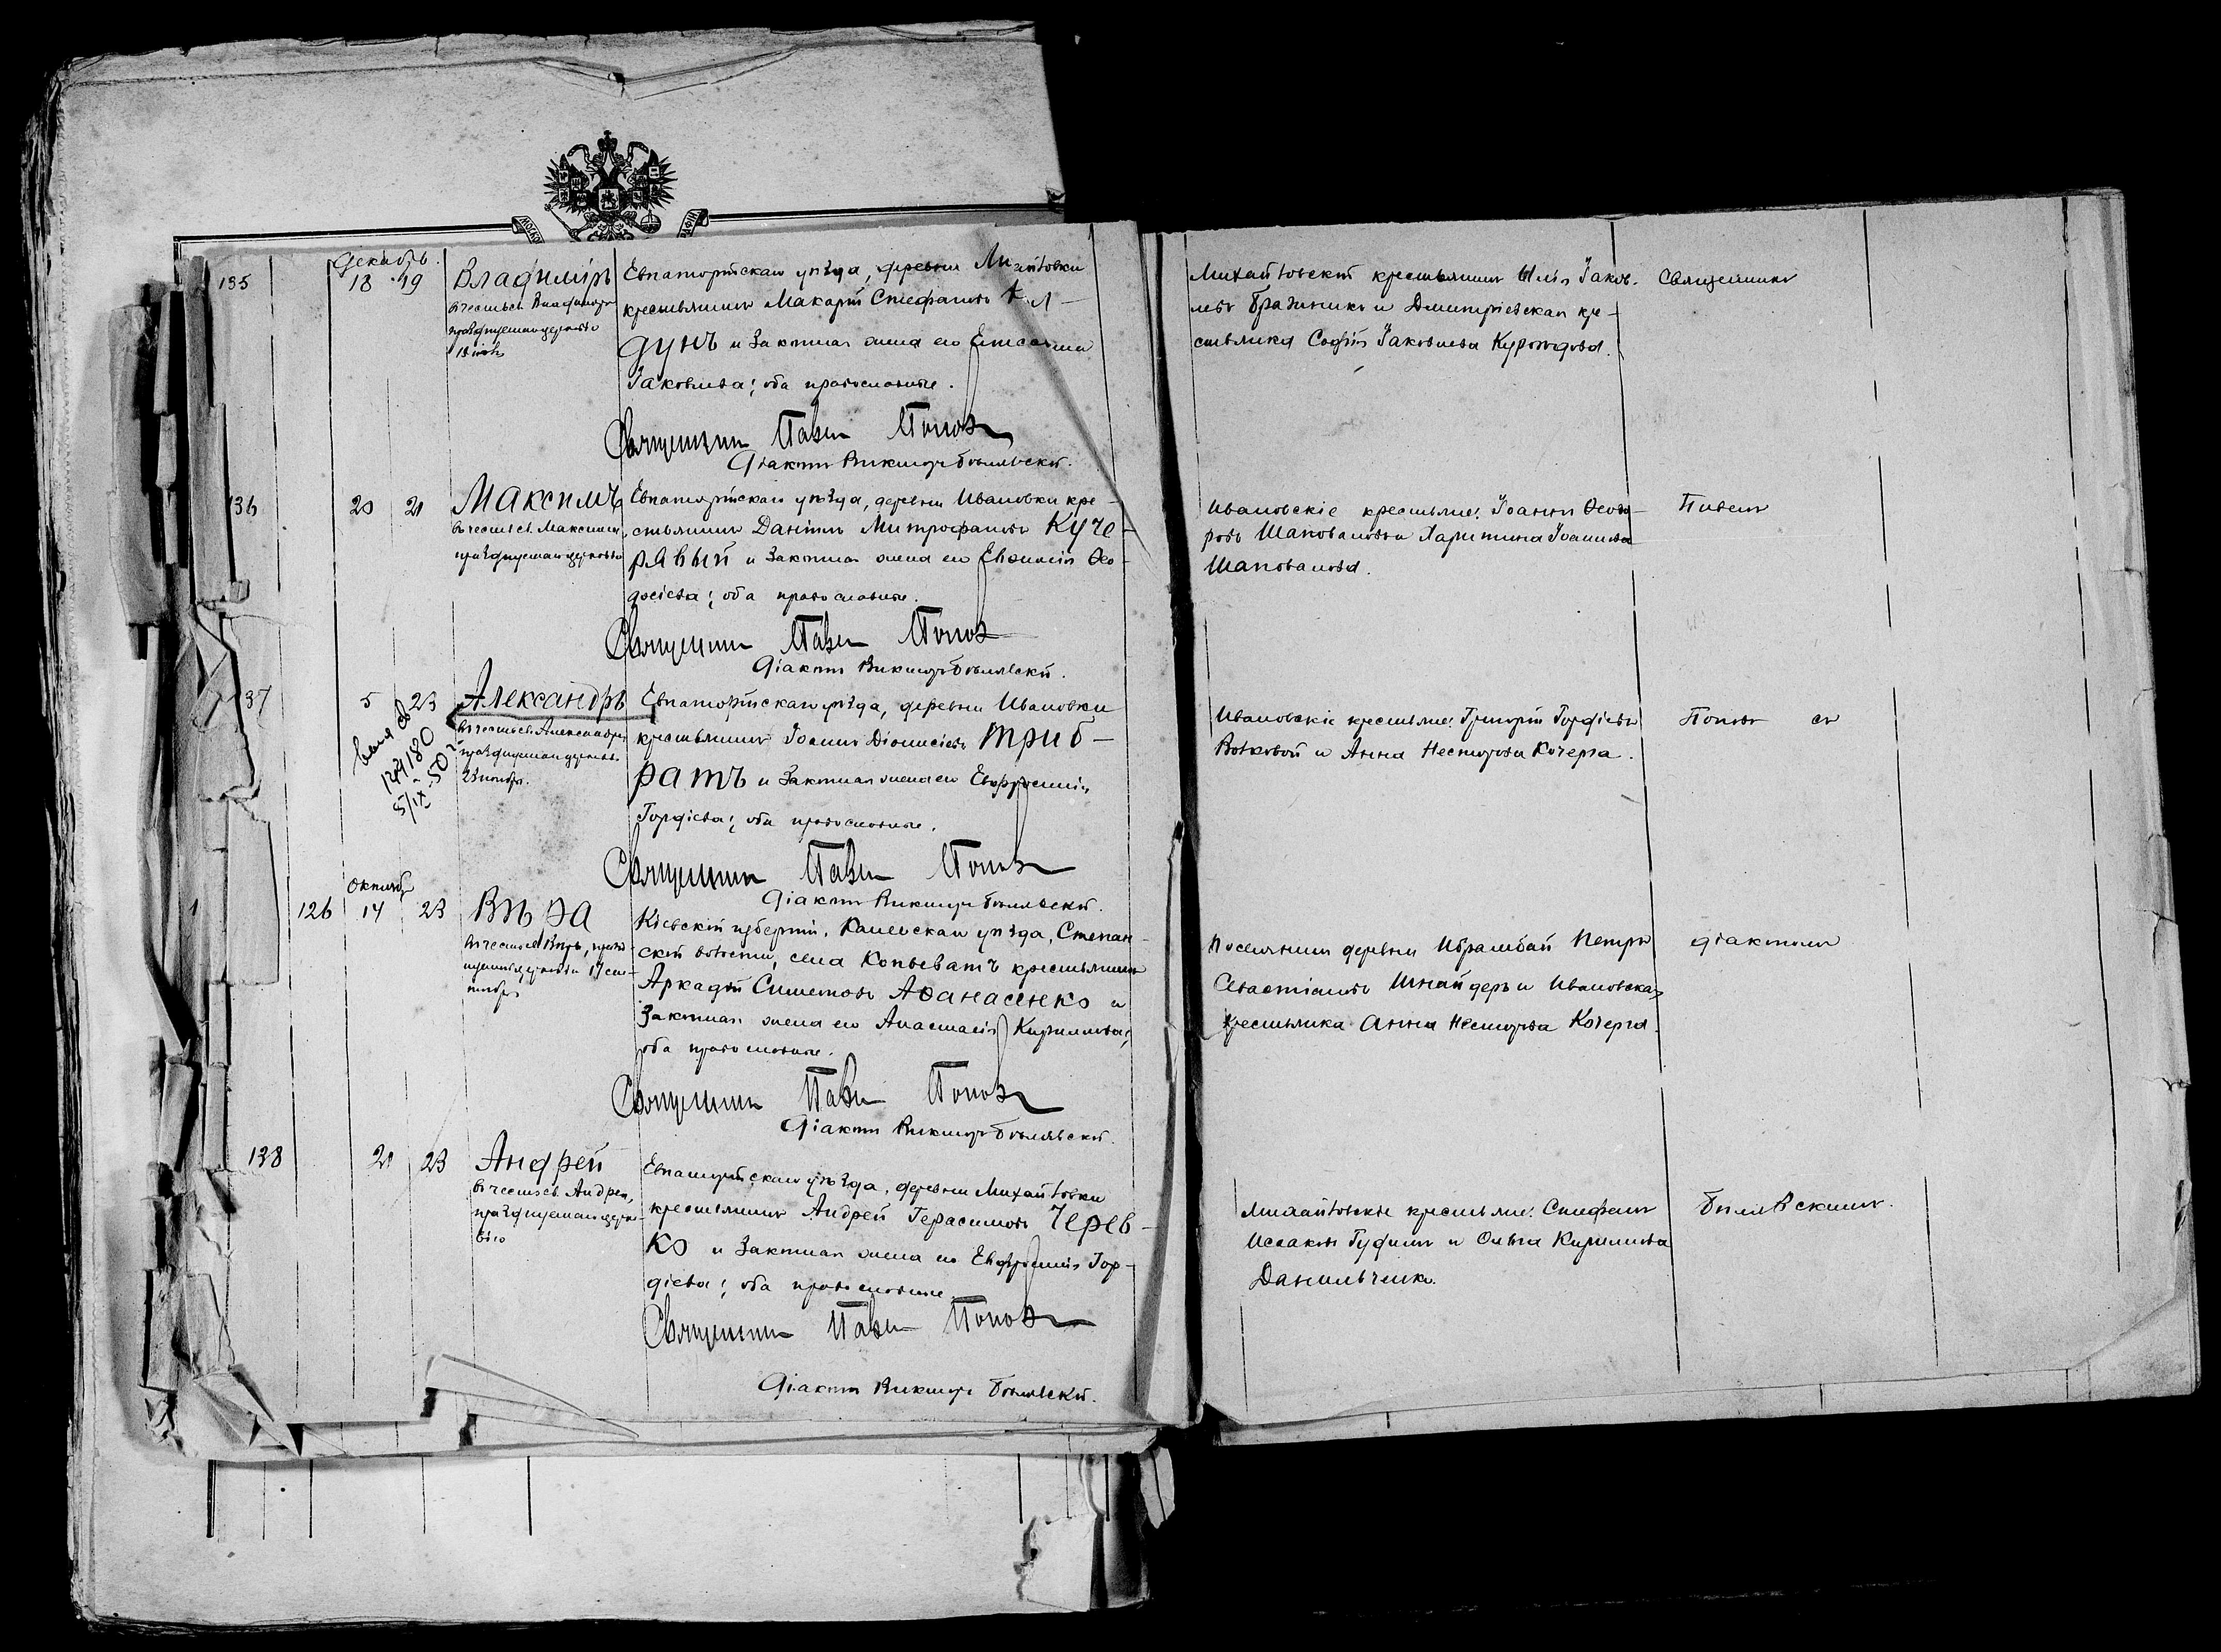 Декабрь.
135
18 19
Владиміръ
въ честь св. Владиміра
празднуемаго церковью
15 іюля
Евпаторійскаго уѣзда, деревни Михайловки
крестьянинъ Макарій Стефановъ
дунъ и законная жена его
Іаковлева; оба православные.
Священникъ Павелъ Поповъ
Діаконъ Викторъ Бѣлявскій.
Михайловскій крестьянинъ Илія Іаков-
левъ Бражникъ и Димитріевская кре-
стьянка Софія Іаковлева
Священникъ
136
20 21
Максимъ
въ честь св. Максима,
празднуемаго церковью
Евпаторійскаго уѣзда, деревни Ивановки кре-
стьянинъ Даніилъ Митрофановъ Куче-
рявый и законная жена его Евѳимія Ѳео-
досіева; оба православные.
Священникъ Павелъ Поповъ
Діаконъ Викторъ Бѣлявскій.
Ивановскіе крестьяне: Іоаннъ Ѳеодо-
ровъ Шаповаловъ и Харитина Іоаннова
Шаповалова.
Павелъ
137
5 23
124180
5/IX-50
Александръ
въ честь св. Александра,
празднуемаго церковью
23 ноября.
Евпаторійскаго уѣзда, деревни Ивановки
крестьянинъ Іоаннъ Діонисіевъ Триб-
ратъ и законная жена его Евфросинія
Гордіева; оба православные.
Священникъ Павелъ Поповъ
Діаконъ Викторъ Бѣлявскій.
Ивановскіе крестьяне: Григорій Гордіевъ
Волковой и Анна Несторова Кочерга.
Поповъ съ
Октябрь
126 14 23
Вѣра
въ честь св. Вѣры, праздн-
уемой церковью 17 сен-
тября
Кіевской губерніи, Каневскаго уѣзда, Степан-
ской волости, села Копьеватъ крестьянинъ
Аркадій Симеоновъ Аѳанасенко и
законная жена его Анастасія Кириллова;
оба православные.
Священникъ Павелъ Поповъ
Діаконъ Викторъ Бѣлявскій.
Поселянинъ деревни Ибрамбай Петръ
Севастіановъ Шнайдеръ и Ивановская
крестьянка Анна Несторова Кочерга.
діакономъ
138
21 23
Андрей
въ честь св. Андрея,
празднуемаго церко-
вью
Евпаторійскаго уѣзда, деревни Михайловки
крестьянинъ Андрей Герасимовъ Черев-
ко и законная жена его Евфросинія Гор-
діева; оба православные
Священникъ Павелъ Поповъ
Діаконъ Викторъ Бѣлявскій.
Михайловскіе крестьяне: Стефанъ
Исааковъ Гудимъ и Ольга Кириллова
Данильченко.
Бѣлявскимъ.